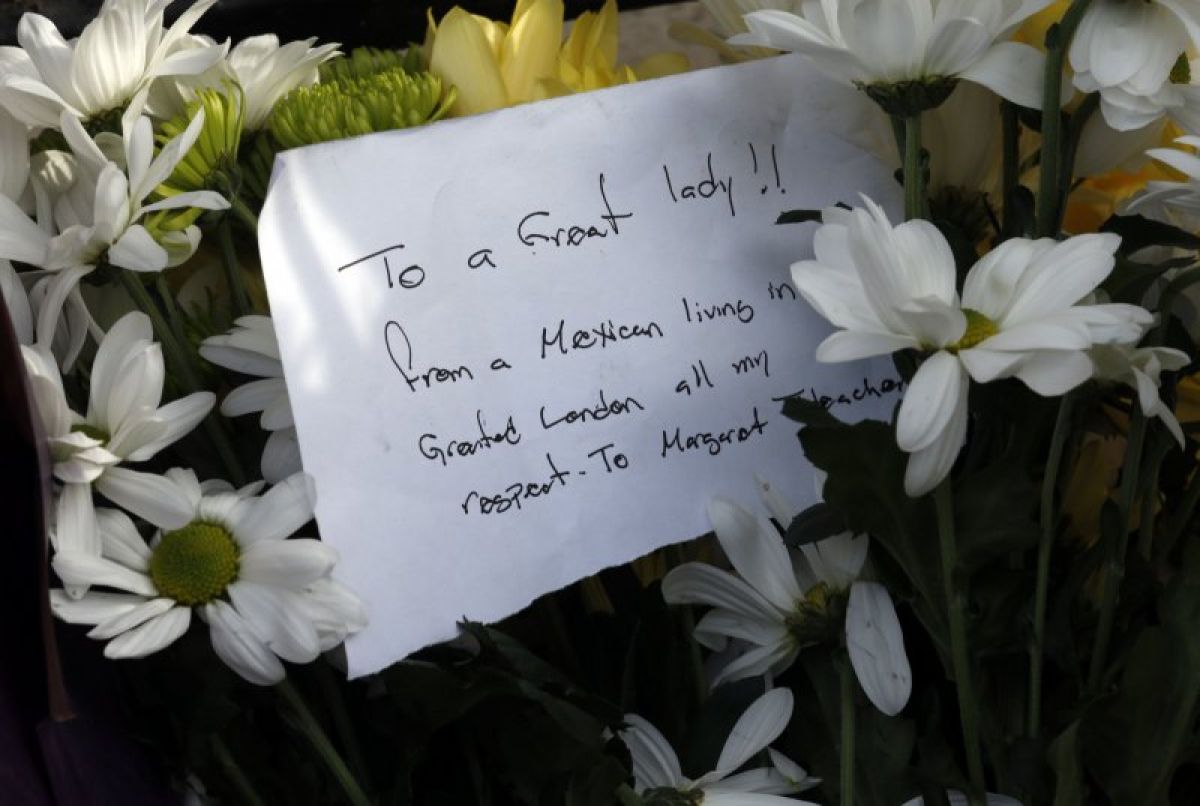 To a Great lady!!
from a Mexican living in
Greated London all my
respect. To Margaret Tteacher